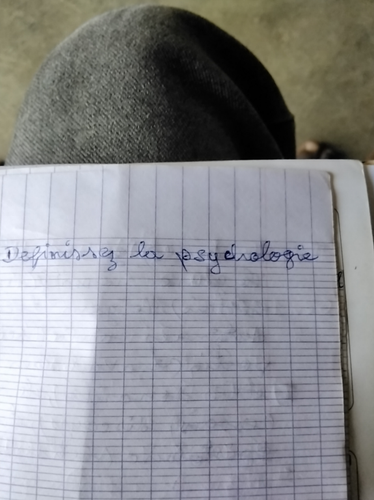 Definissez la psychologie